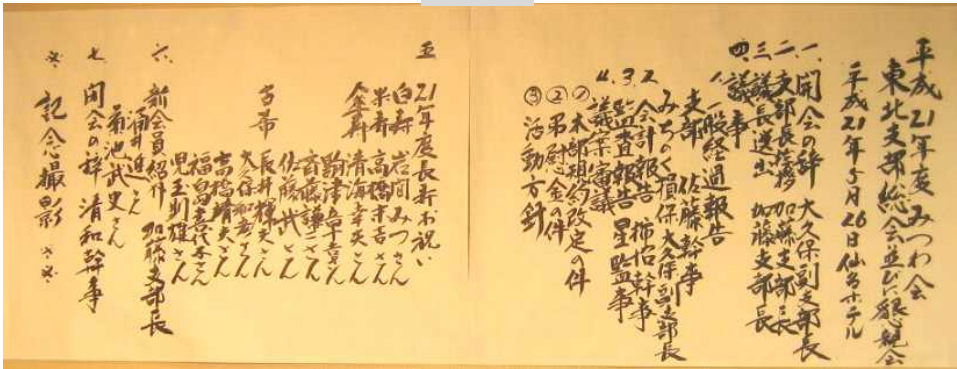 平成21年度みつわ会
東北支部総会並びに懇親会
平成21年5月26日仙台ホテル
一、開会の辞 大久保副支部長
二、支部長挨拶 加藤支部長
三、議長送出 加藤支部長
四、議事
1、一般経過報告
支部 佐藤幹事
みちのく損保 大久保副支部長
2、会計報告 幹事
3、監査報告 星監事
4、議案審議
① 本部規約改定の件
② 弔慰金の件
③ 活動方針
五 21年度長寿お祝い
白寿 岩間みつさん
米寿 高橋幸吉さん
傘寿 清海幸英さん
斉藤謙二さん
佐藤武さん
古希 長井輝夫さん
大久保 さん
高橋靖夫さん
福島喜代志さん
児玉則雄さん
六、新会員紹介 加藤支部長
涌井進さん
菊池武史さん
七 閉会の辞 清和幹事
記念撮影